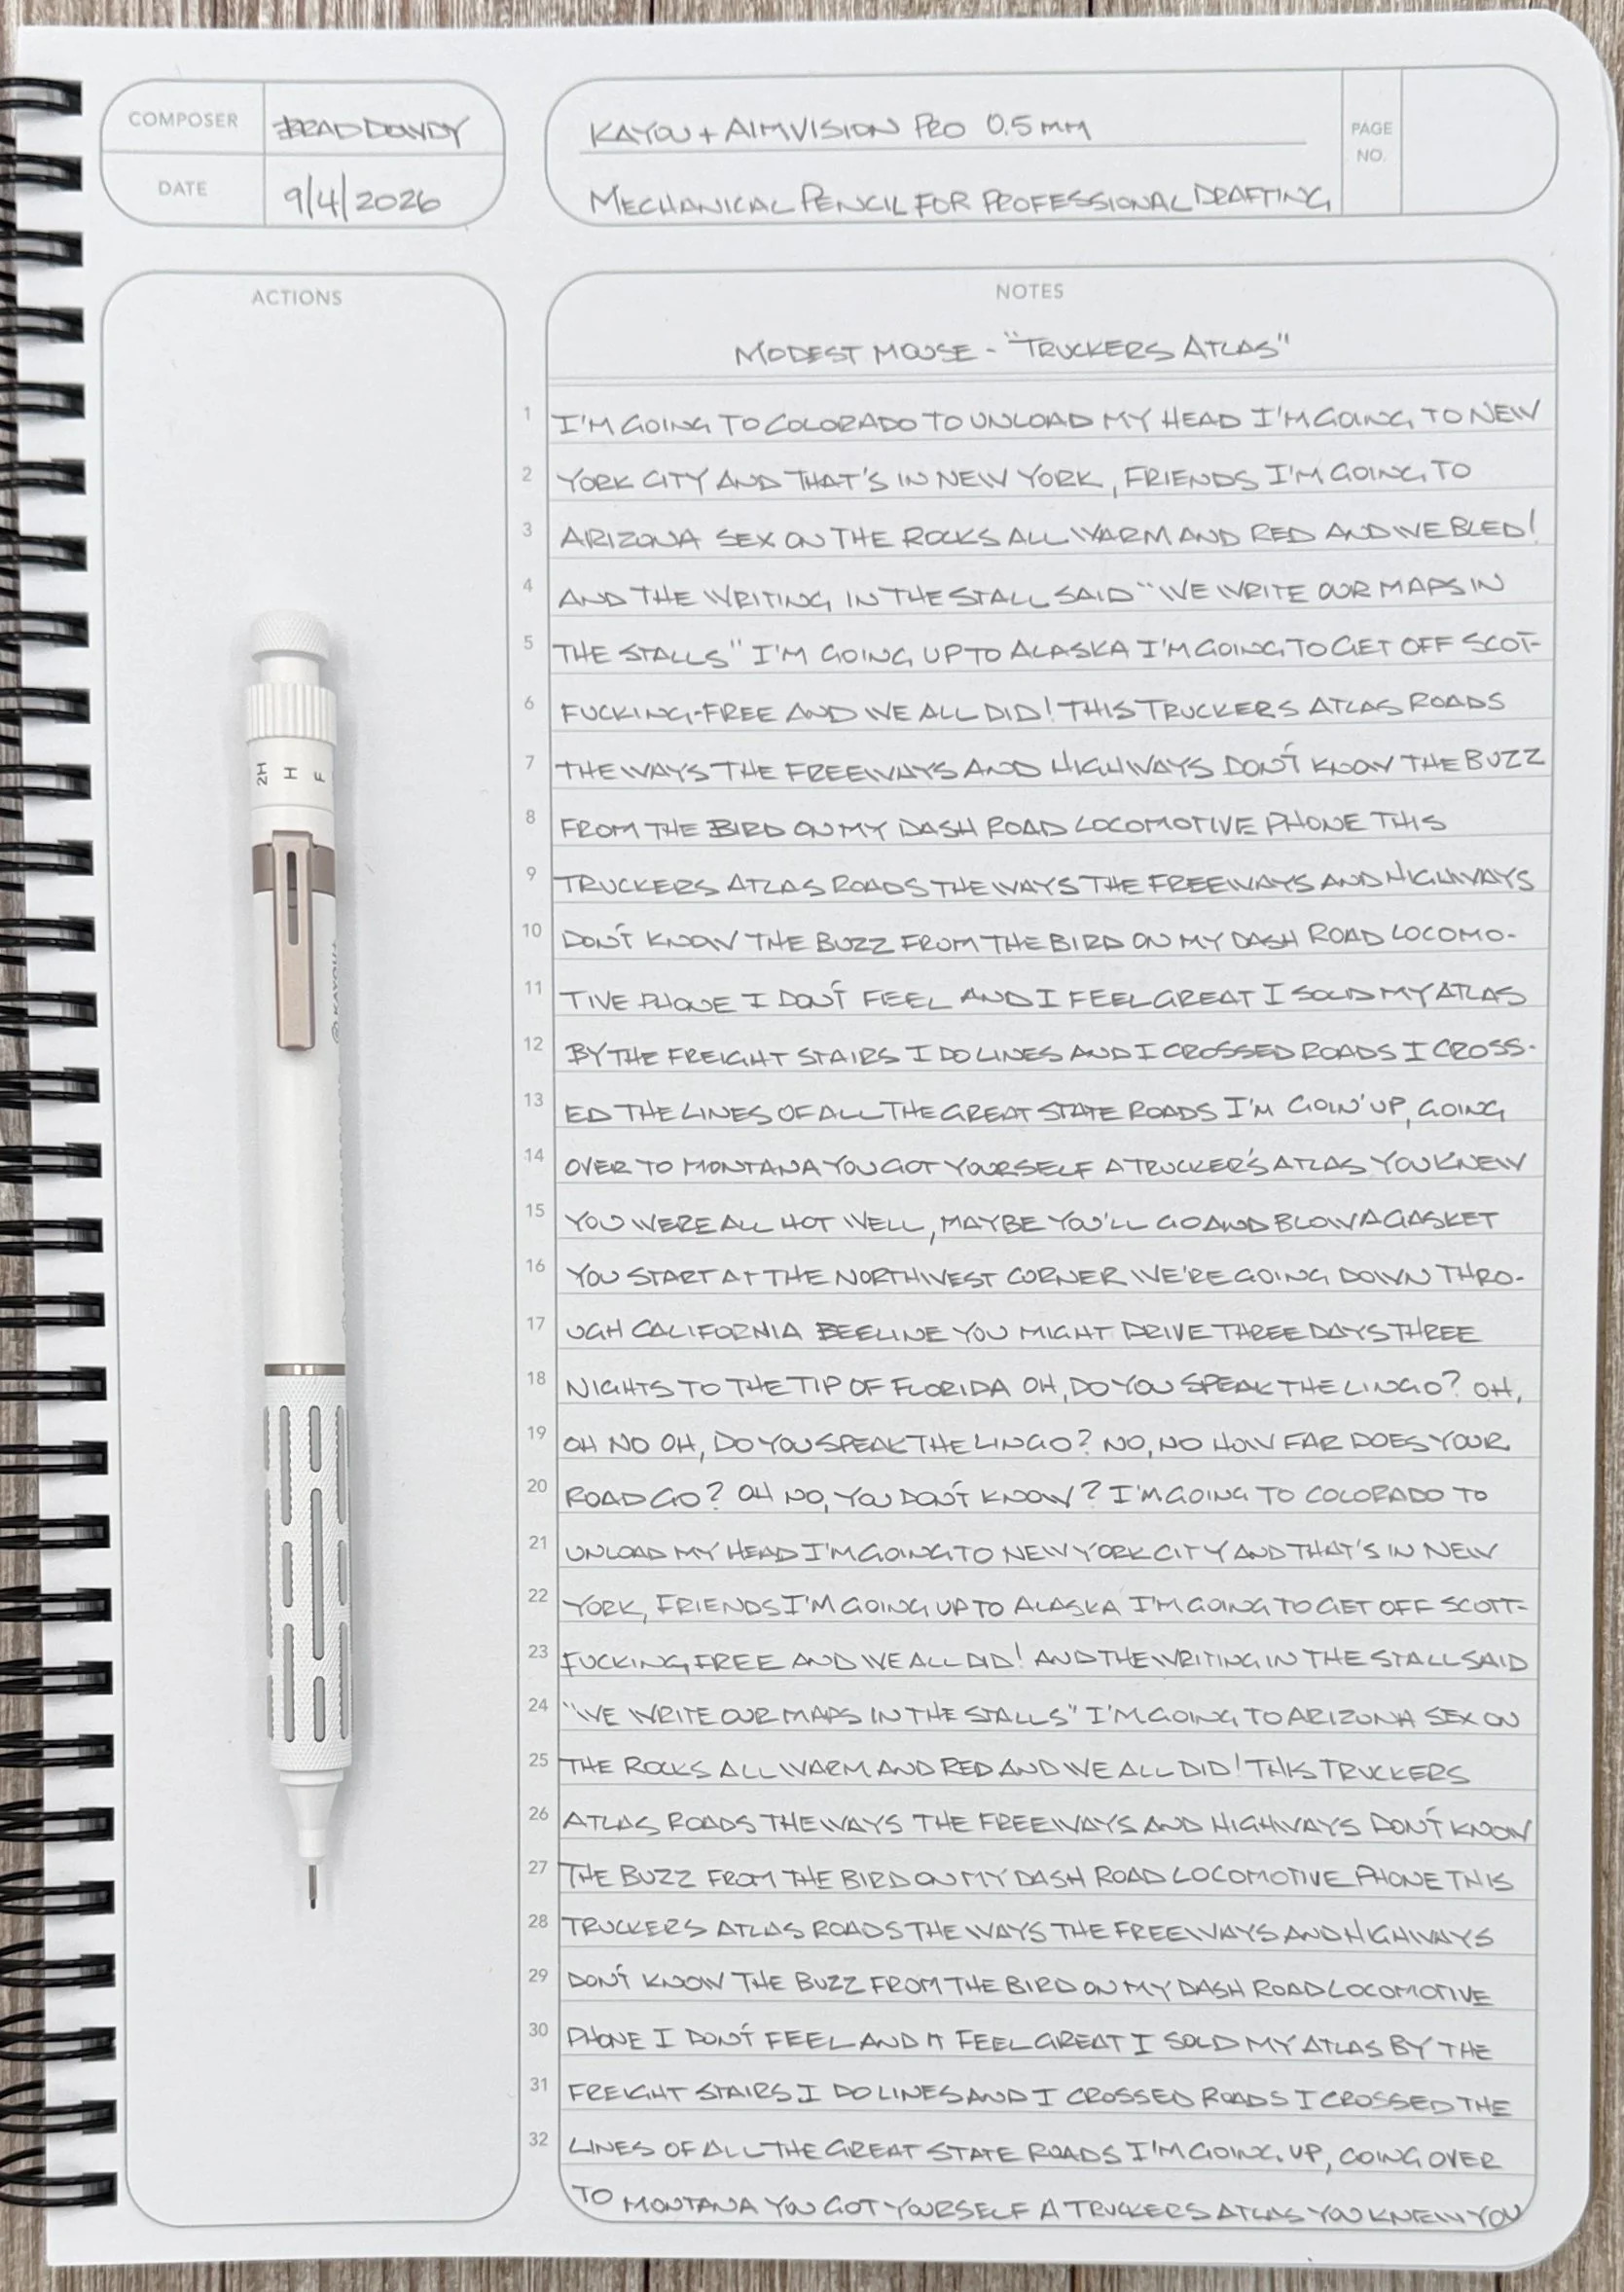 COMPOSER BRAD DOWDY
DATE 9/4/2026
KAYOU + AIMVISION PRO 0.5MM
MECHANICAL PENCIL FOR PROFESSIONAL DRAFTING
PAGE NO.
ACTIONS
2H H F
KAYOU+
NOTES
MODEST MOUSE - "TRUCKERS ATLAS"
1 I'M GOING TO COLORADO TO UNLOAD MY HEAD I'M GOING TO NEW
2 YORK CITY AND THAT'S IN NEW YORK, FRIENDS I'M GOING TO
3 ARIZONA SEX ON THE ROCKS ALL WARM AND RED AND WE BLED!
4 AND THE WRITING IN THE STALL SAID "WE WRITE OUR MAPS IN
5 THE STALLS" I'M GOING UP TO ALASKA I'M GOING TO GET OFF SCOT-
6 FUCKING-FREE AND WE ALL DID! THIS TRUCKERS ATLAS ROADS
7 THE WAYS THE FREEWAYS AND HIGHWAYS DON'T KNOW THE BUZZ
8 FROM THE BIRD ON MY DASH ROAD LOCOMOTIVE PHONE THIS
9 TRUCKERS ATLAS ROADS THE WAYS THE FREEWAYS AND HIGHWAYS
10 DON'T KNOW THE BUZZ FROM THE BIRD ON MY DASH ROAD LOCOMO-
11 TIVE PHONE I DON'T FEEL AND I FEEL GREAT I SOLD MY ATLAS
12 BY THE FREIGHT STAIRS I DO LINES AND I CROSSED ROADS I CROSS-
13 ED THE LINES OF ALL THE GREAT STATE ROADS I'M GOIN' UP, GOING
14 OVER TO MONTANA YOU GOT YOURSELF A TRUCKER'S ATLAS YOU KNEW
15 YOU WERE ALL HOT WELL, MAYBE YOU'LL GO AND BLOW A GASKET
16 YOU START AT THE NORTHWEST CORNER WE'RE GOING DOWN THRO-
17 UGH CALIFORNIA BEELINE YOU MIGHT DRIVE THREE DAYS THREE
18 NIGHTS TO THE TIP OF FLORIDA OH, DO YOU SPEAK THE LINGO? OH,
19 OH NO OH, DO YOU SPEAK THE LINGO? NO, NO HOW FAR DOES YOUR
20 ROAD GO? OH NO, YOU DON'T KNOW? I'M GOING TO COLORADO TO
21 UNLOAD MY HEAD I'M GOING TO NEW YORK CITY AND THAT'S IN NEW
22 YORK, FRIENDS I'M GOING UP TO ALASKA I'M GOING TO GET OFF SCOTT-
23 FUCKING FREE AND WE ALL DID! AND THE WRITING IN THE STALL SAID
24 "WE WRITE OUR MAPS IN THE STALLS" I'M GOING TO ARIZONA SEX ON
25 THE ROCKS ALL WARM AND RED AND WE ALL DID! THIS TRUCKERS
26 ATLAS ROADS THE WAYS THE FREEWAYS AND HIGHWAYS DON'T KNOW
27 THE BUZZ FROM THE BIRD ON MY DASH ROAD LOCOMOTIVE PHONE THIS
28 TRUCKERS ATLAS ROADS THE WAYS THE FREEWAYS AND HIGHWAYS
29 DON'T KNOW THE BUZZ FROM THE BIRD ON MY DASH ROAD LOCOMOTIVE
30 PHONE I DON'T FEEL AND IT FEEL GREAT I SOLD MY ATLAS BY THE
31 FREIGHT STAIRS I DO LINES AND I CROSSED ROADS I CROSSED THE
32 LINES OF ALL THE GREAT STATE ROADS I'M GOING UP, GOING OVER
TO MONTANA YOU GOT YOURSELF A TRUCKERS ATLAS YOU KNEW YOU